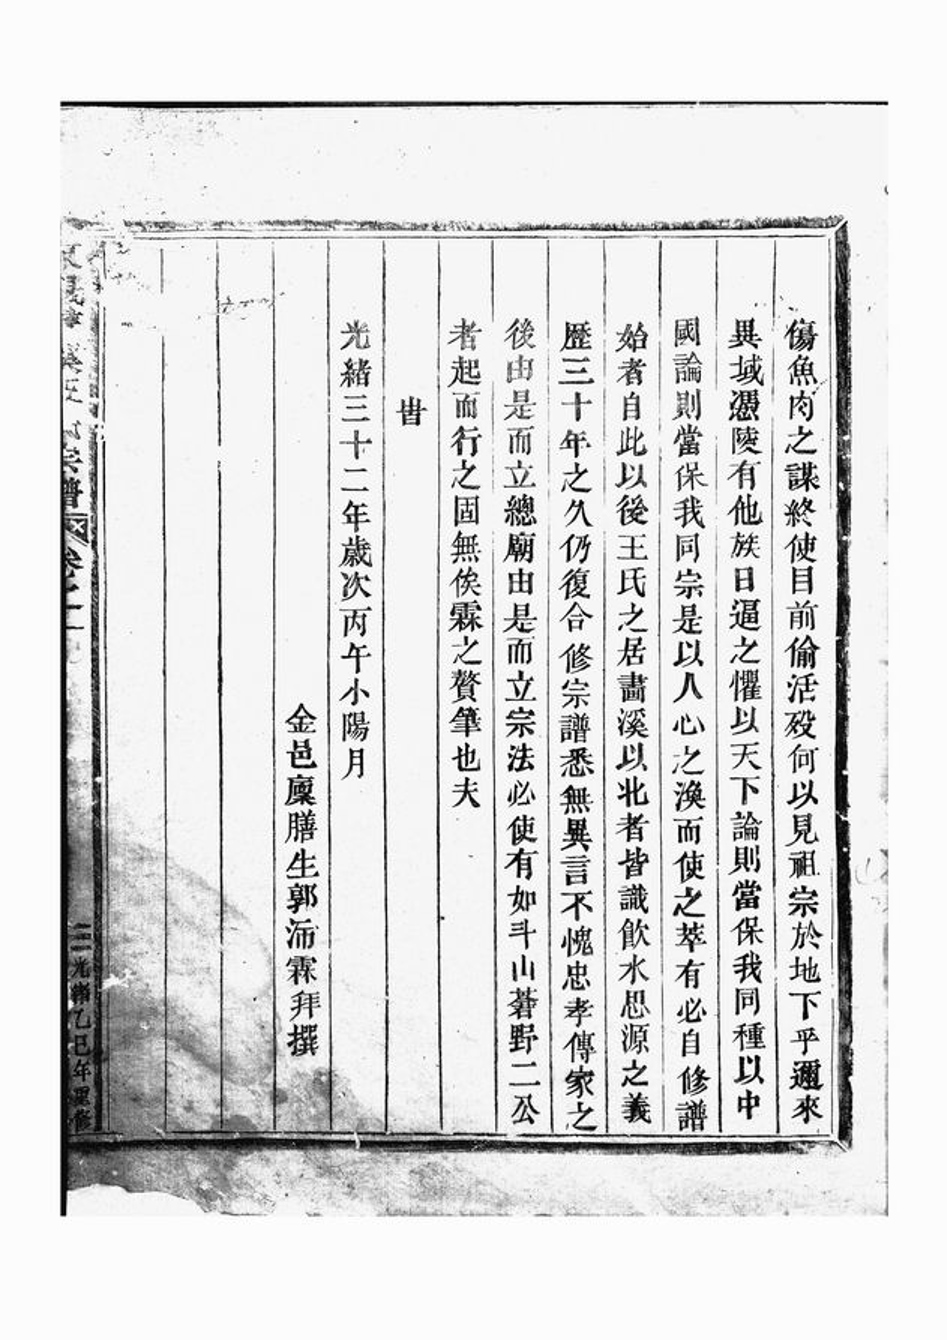 傷魚肉之謀終使目前偷活殁何以見祖宗於地下乎邇來
異域憑陵有他族日逼之懼以天下論則當保我同種以中
國論則當保我同宗是以人心之渙而使之萃有必自修譜
始者自此以後王氏之居畵溪以北者皆識飮水思源之義
歷三十年之久仍復合修宗譜悉無異言不愧忠孝傳家之
後由是而立總廟由是而立宗法必使有如斗山碁野二公
者起而行之固無俟霖之贅筆也夫
旹
光緒三十二年歲次丙午小陽月
金邑廩膳生郭沛霖拜撰
宗譜
卷之一
光緒乙巳年重修